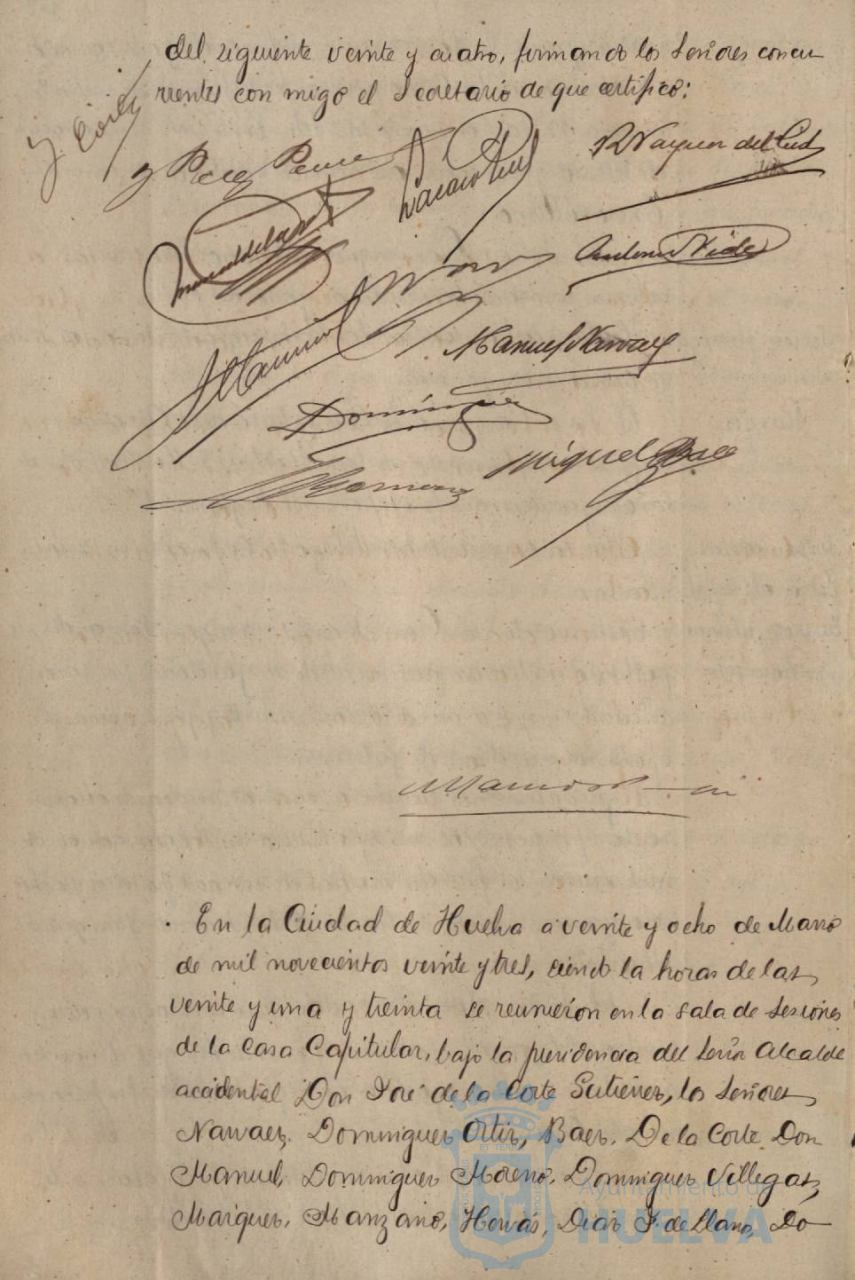 del siguiente veinte y cuatro, firmando los Señores concu
rrentes con migo el Secretario de que certifico:
Antonio Vides
Manuel Narvaez
Dominguez
Miguel Baez
. En la Ciudad de Huelva a veinte y ocho de Marzo
de mil novecientos veinte y tres, siendo la horas de las
veinte y una y treinta se reunieron en la sala de Sesiones
de la Casa Capitular, bajo la presidencia del Señor Alcalde
accidental Don José de la Corte Gutierrez, los Señores
Narvaez, Dominguez Ortiz, Baez, De la Corte Don
Manuel, Dominguez Moreno, Dominguez Villegas,
Marquez, Manzano, Hervás, Diaz F. de Llano, Do
Ayuntamiento de
HUELVA